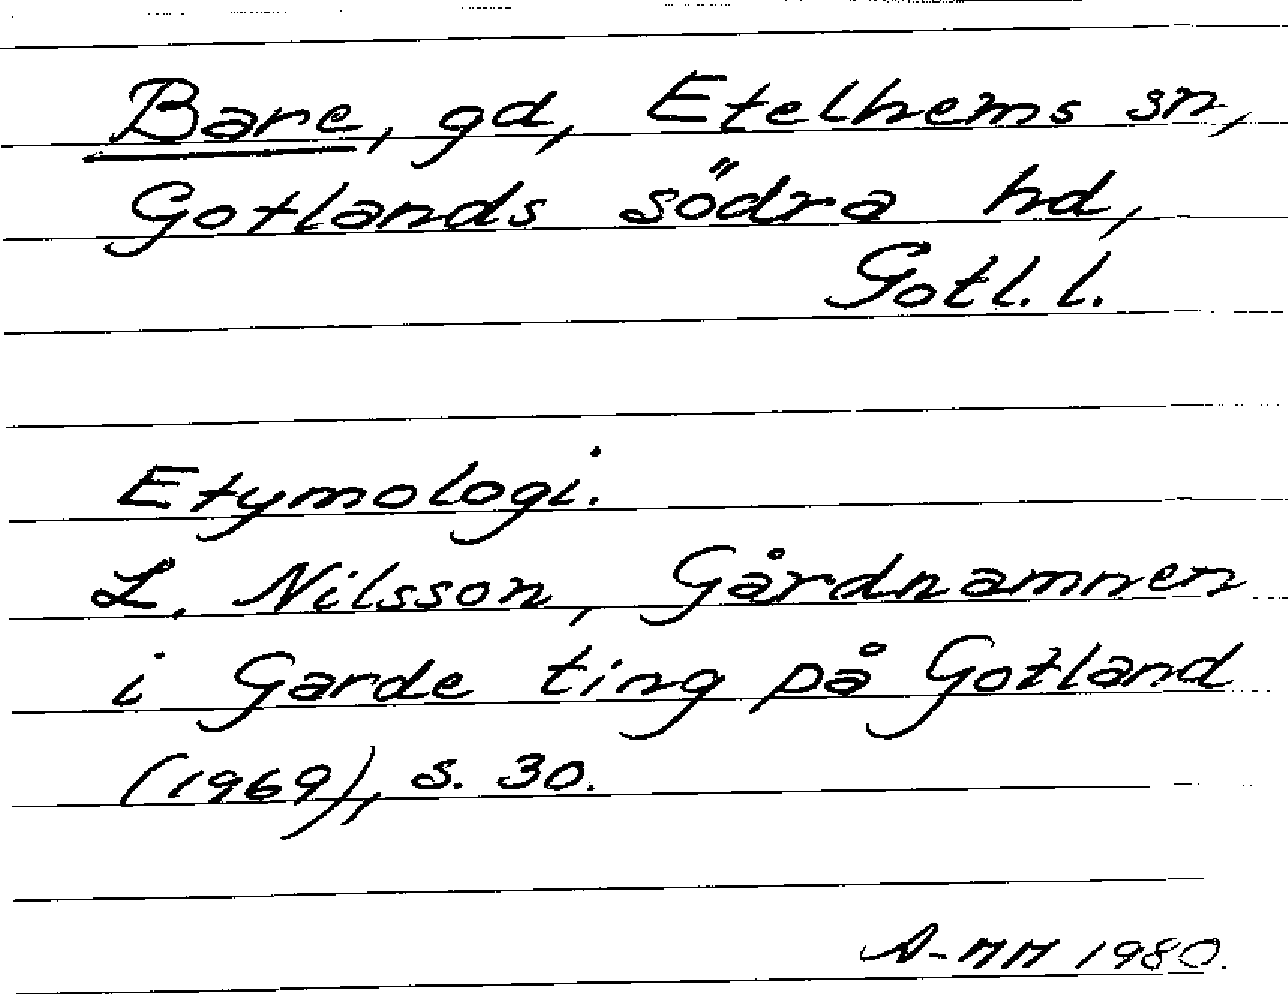 Bare, gd, Etelhems sn,
Gotlands södra hd,
Gotl. l.
Etymologi.
L. Nilsson, Gårdnamnen
i Garde ting på Gotland
(1969), s. 30.
A-MM 1980.